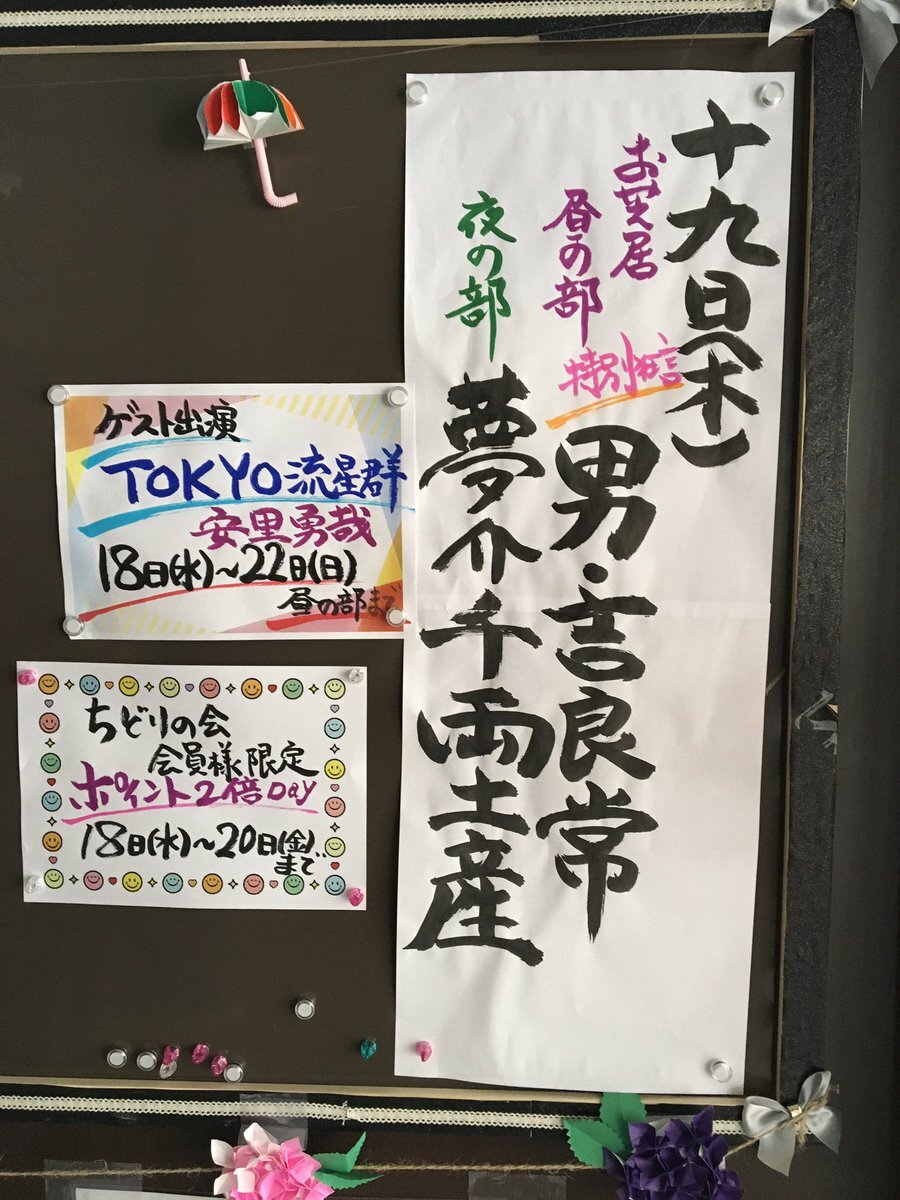 十九日(木)
お芝居
昼の部
特別狂言
男・吉良常
夜の部
夢介千両土産
ゲスト出演
TOKYO流星群
安里勇哉
18日(水)～22日(日)
昼の部まで
ちどりの会
会員様限定
ポイント2倍Day
18日(水)～20日(金)
まで